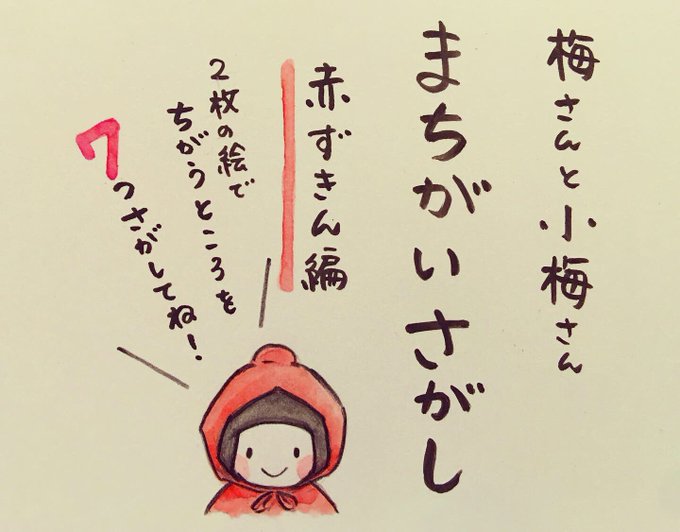 梅さんと小梅さん
まちがいさがし
赤ずきん編
2枚の絵で
ちがうところを
7つさがしてね!